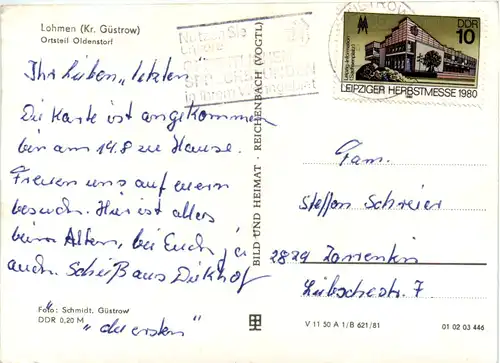 Lohmen (Kr. Güstrow)
Ortsteil Oldenstorf
Nutzen Sie
in Ihrem
DDR
10
Leipzig-Information
LEIPZIGER HERBSTMESSE 1980
Ihr lieben "letzten"
Die Karte ist angekommen
bin am 14.8 zu Hause.
Freuen uns auf euern
besuch. Hier ist alles
beim Alten, bei Euch ja
auch. Schöß aus Dickhof
"die ersten"
BILD UND HEIMAT · REICHENBACH (VOGTL)
Fam.
Steffen Schreier
2824 Zarrentin
Lübschestr. 7
Foto: Schmidt, Güstrow
DDR 0,20 M
V 11 50 A 1/B 621/81
01 02 03 446